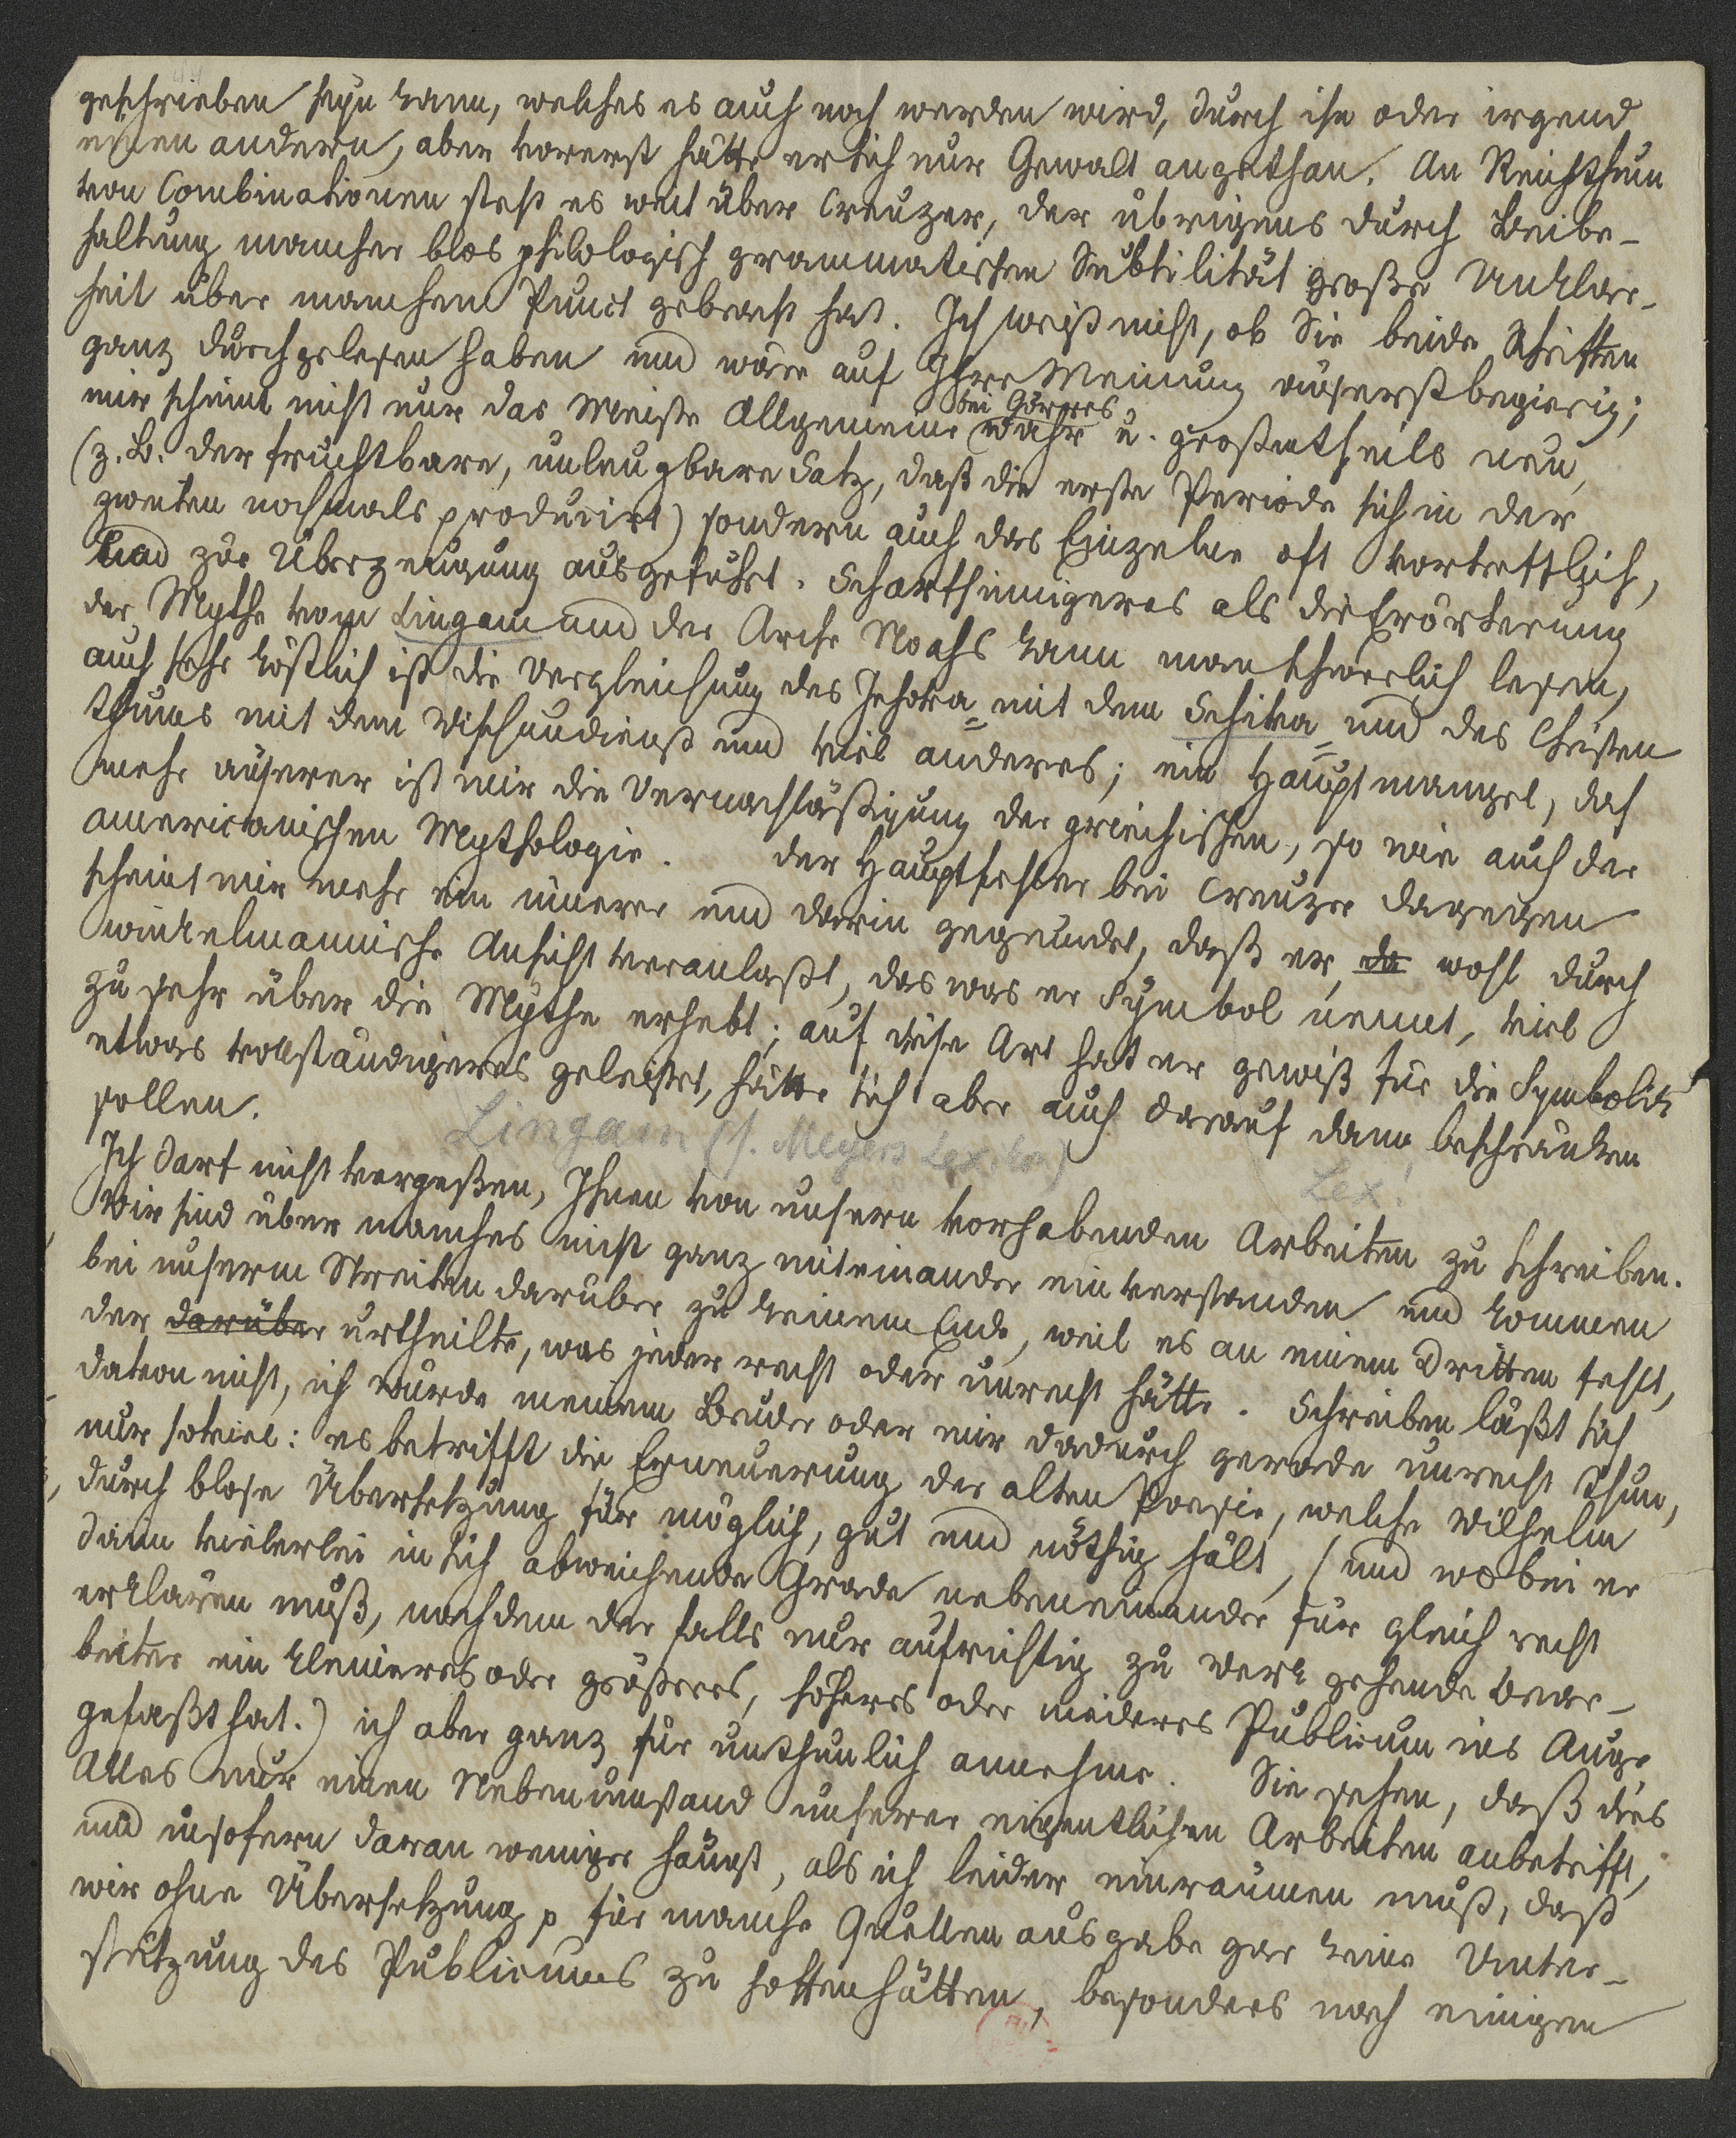 geschrieben seyn kann, welches es auch noch werden wird, durch ihn oder irgend
einen andern, aber vorerst hätte er sich nur Gewalt angethan. An Reichthum
von Combinationen steht es weit über Creuzer, der übrigens durch Beibe-
haltung mancher blos philologisch grammatischen Subtilität große Unklar-
heit über manchen Punct gebracht hat. Ich weiß nicht, ob Sie beide Schriften
ganz durchgelesen haben und wäre auf Ihre Meinung äuserst begierig;
mir scheint nicht nur das Meiste Allgemeine bei Görres wahr u. großentheils neu,
(z. B. der fruchtbare, unleugbare Satz, daß die erste Periode sich in der
zweiten nochmals producirt) sondern auch das Einzelne oft vortrefflich,
und zur Überzeugung ausgeführt. Scharfsinnigeres als die Erörterung
der Mythe vom Lingam und der Arche Noahs kann man schwerlich lesen,
auch sehr köstlich ist die Vergleichung des Jehova mit dem Schiva und des Christen
thums mit dem Wischnudienst und viel anderes; ein Hauptmangel, doch
mehr äuserer ist mir die Vernachläßigung der griechischen, so wie auch der
americanischen Mythologie. Der Hauptfehler bei Creuzer dagegen
scheint mir mehr ein innerer und darin gegründet, daß er, da wohl durch
winkelmannische Ansicht veranlaßt, das was er Symbol nennt, viel
zu sehr über die Mythe erhebt; auf diese Art hat er gewiß für die Symbolik
etwas vollständigeres geleistet, hätte sich aber auch darauf dann beschränken
sollen.
Lingam (s. Meyers Lexikon)
Lex!
Ich darf nicht vergeßen, Ihnen von unsern vorhabenden Arbeiten zu schreiben.
Wir sind über manches nicht ganz miteinander einverstanden und kommen
bei unserm Streiten darüber zu keinem Ende, weil es an einem Dritten fehlt,
der darüber urtheilte, was jeder recht oder unrecht hätte. Schreiben läßt sich
davon nicht, ich würde meinem Bruder oder mir dadurch gerade unrecht thun,
nur soviel: es betrifft die Erneuerung der alten Poesie, welche Wilhelm
durch blose Übersetzung für möglich, gut und nöthig hält, (und wobei er
dann vielerlei in sich abweichende Grade nebeneinander für gleich recht
erklären muß, nachdem der falls nur aufrichtig zu Werk gehende Bear-
beiter ein kleineres oder größeres, höheres oder niederes Publicum ins Auge
gefaßt hat.) ich aber ganz für unthunlich annehme. Sie sehen, daß dies
Alles nur einen Nebenumstand unserer eigentlichen Arbeiten anbetrifft,
und insofern daran weniger hängt, als ich leider einräumen muß, daß
wir ohne Übersetzung p für manche Quellenausgabe gar keine Unter-
stützung des Publicums zu hoffen hätten, besonders noch einigen